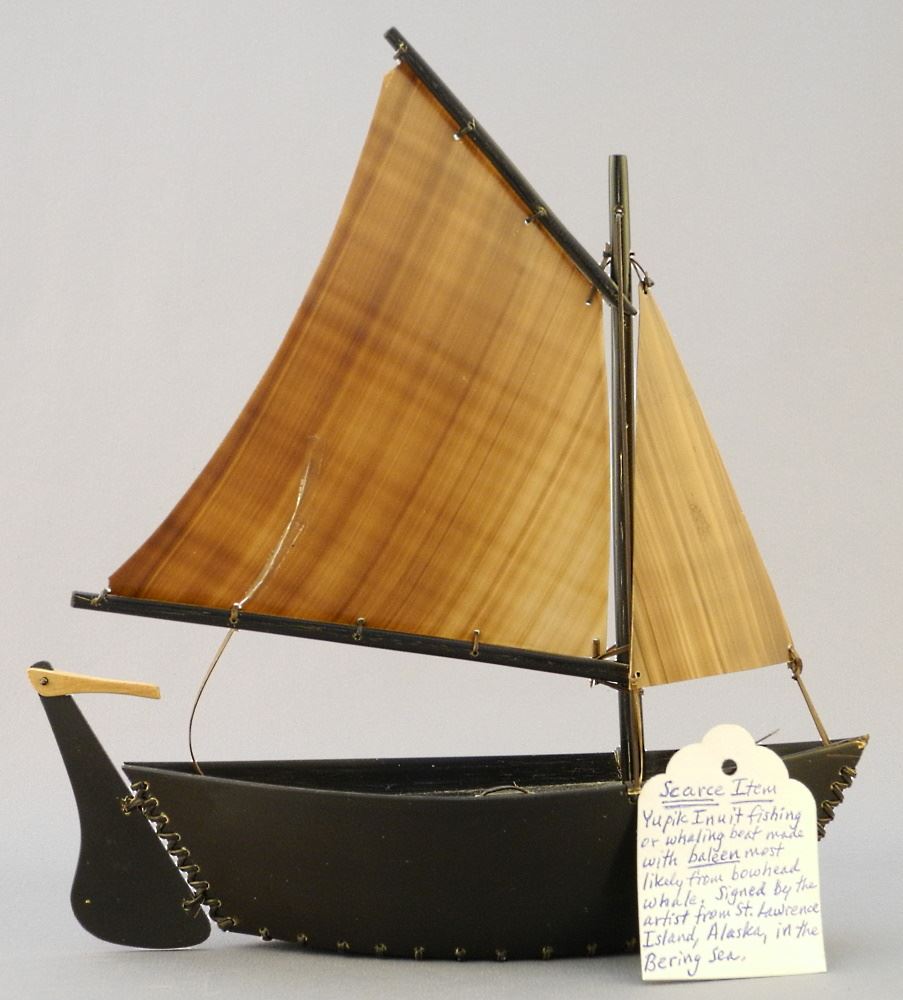 Scarce Item
Yupik Inuit fishing
or whaling boat made
with baleen most
likely from bowhead
whale. Signed by the
artist from St. Lawrence
Island, Alaska, in the
Bering Sea.